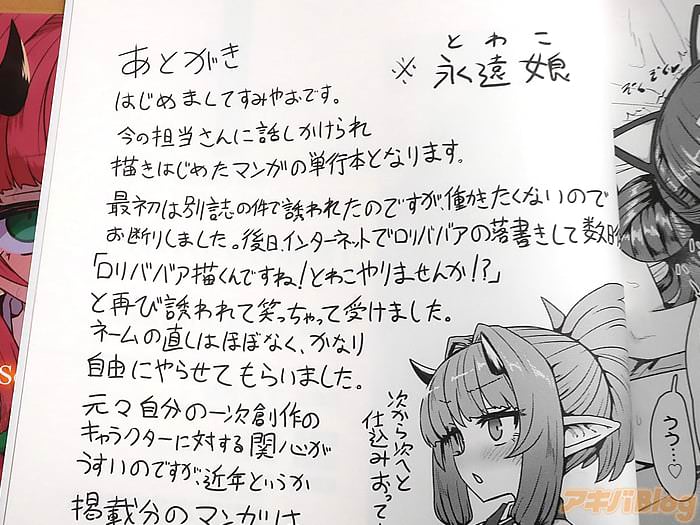 あとがき
※ 永遠娘
とわこ
はじめましてすみやおです。
今の担当さんに話しかけられ
描きはじめたマンガの単行本となります。
最初は別誌の件で誘われたのですが、働きたくないので
お断りしました。後日、インターネットでロリババアの落書きして数時
「ロリババア描くんですね!とわこやりませんか!?」
と再び誘われて笑っちゃって受けました。
ネームの直しはほぼなく、かなり
自由にやらせてもらいました。
元々自分の一次創作の
キャラクターに対する関心が
うすいのですが、近年というか
掲載分のマンガは
次から次へと
仕込みおって
うう…♡
アキバBlog